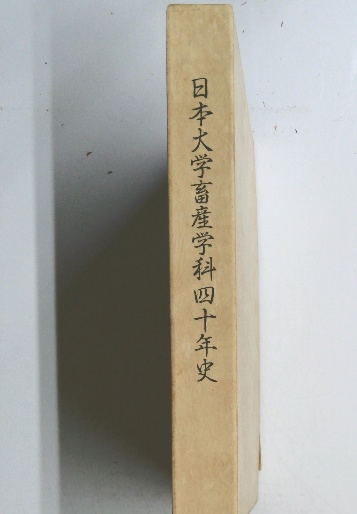 日本大学畜産学科四十年史